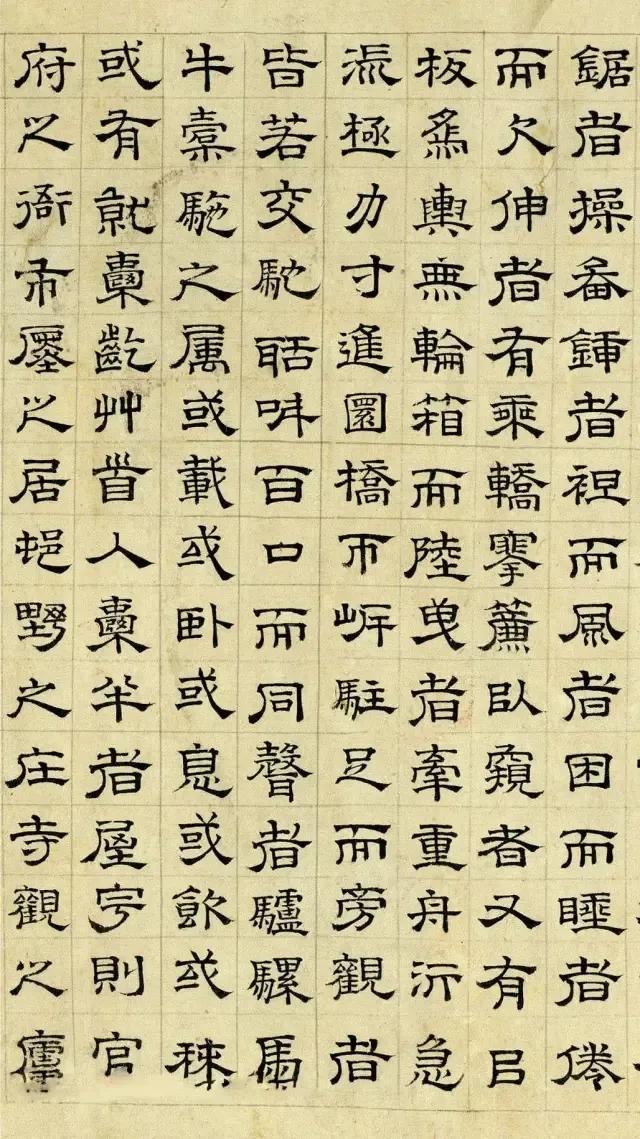 鋸者操畚鍤者袒而風者困而睡者倦
而欠伸者有乘轎搴簾以窺者又有㠯
板為輿無輪箱而陸曳者牽重舟泝急
流極力寸進圜橋帀岸駐足而旁觀者
皆若交馳聒呌百口而同聲者驢騾馬
牛橐駞之属或載或卧或息或飲或秣
或有就囊齕艸首入囊半者屋宇則官
府之衙市廛之居邨野之庄寺觀之廬